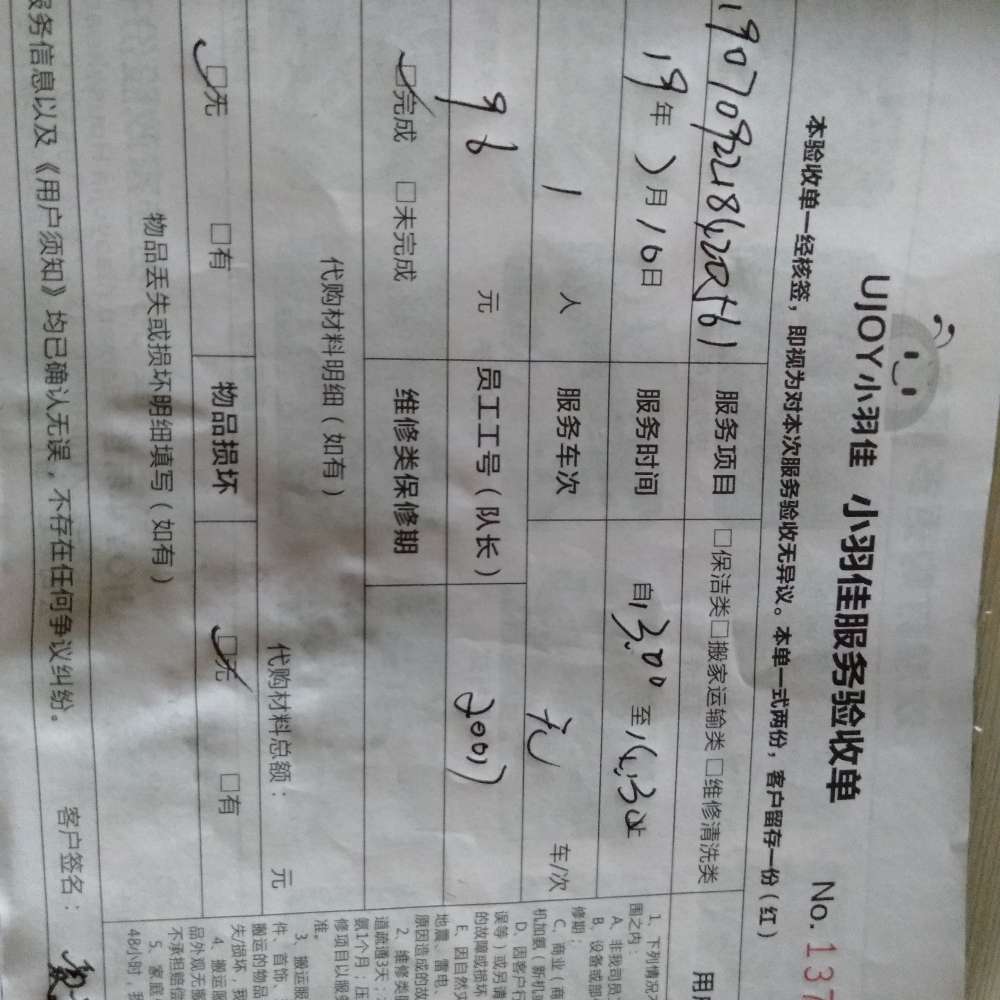 UJOY小羽佳 小羽佳服务验收单 No.137
本验收单一经核签，即视为对本次服务验收无异议。本单一式两份，客户留存一份（红）
服务项目 □保洁类□搬家运输类 □维修清洗类
19年 7月16日 服务时间 自13:00 至16:30
1 人 服务车次 无 车/次
96 元 员工工号（队长） 20017
完成 □未完成 维修类保修期
代购材料明细（如有） 代购材料总额： 元
无 □有 物品损坏 无 □有
物品丢失或损坏明细填写（如有）
服务信息以及《用户须知》均已确认无误，不存在任何争议纠纷。 客户签名：
用户
1、下列情况不
围之内：
A、非我司员
B、设备或部
修期；
C、商业（商
机加氨（新机
D、因客户行
误等）或另请
的故障或损坏
E、因自然灾
地震、雷电、
原因造成的故
2、维修类服
道疏通3天；
氨1个月；压
修项目以服务
准。
3、搬运服
件、首饰、
搬运的物品
4、搬运服
失/损坏，我
品外观无服
不承担赔偿
5、家庭
48小时，我